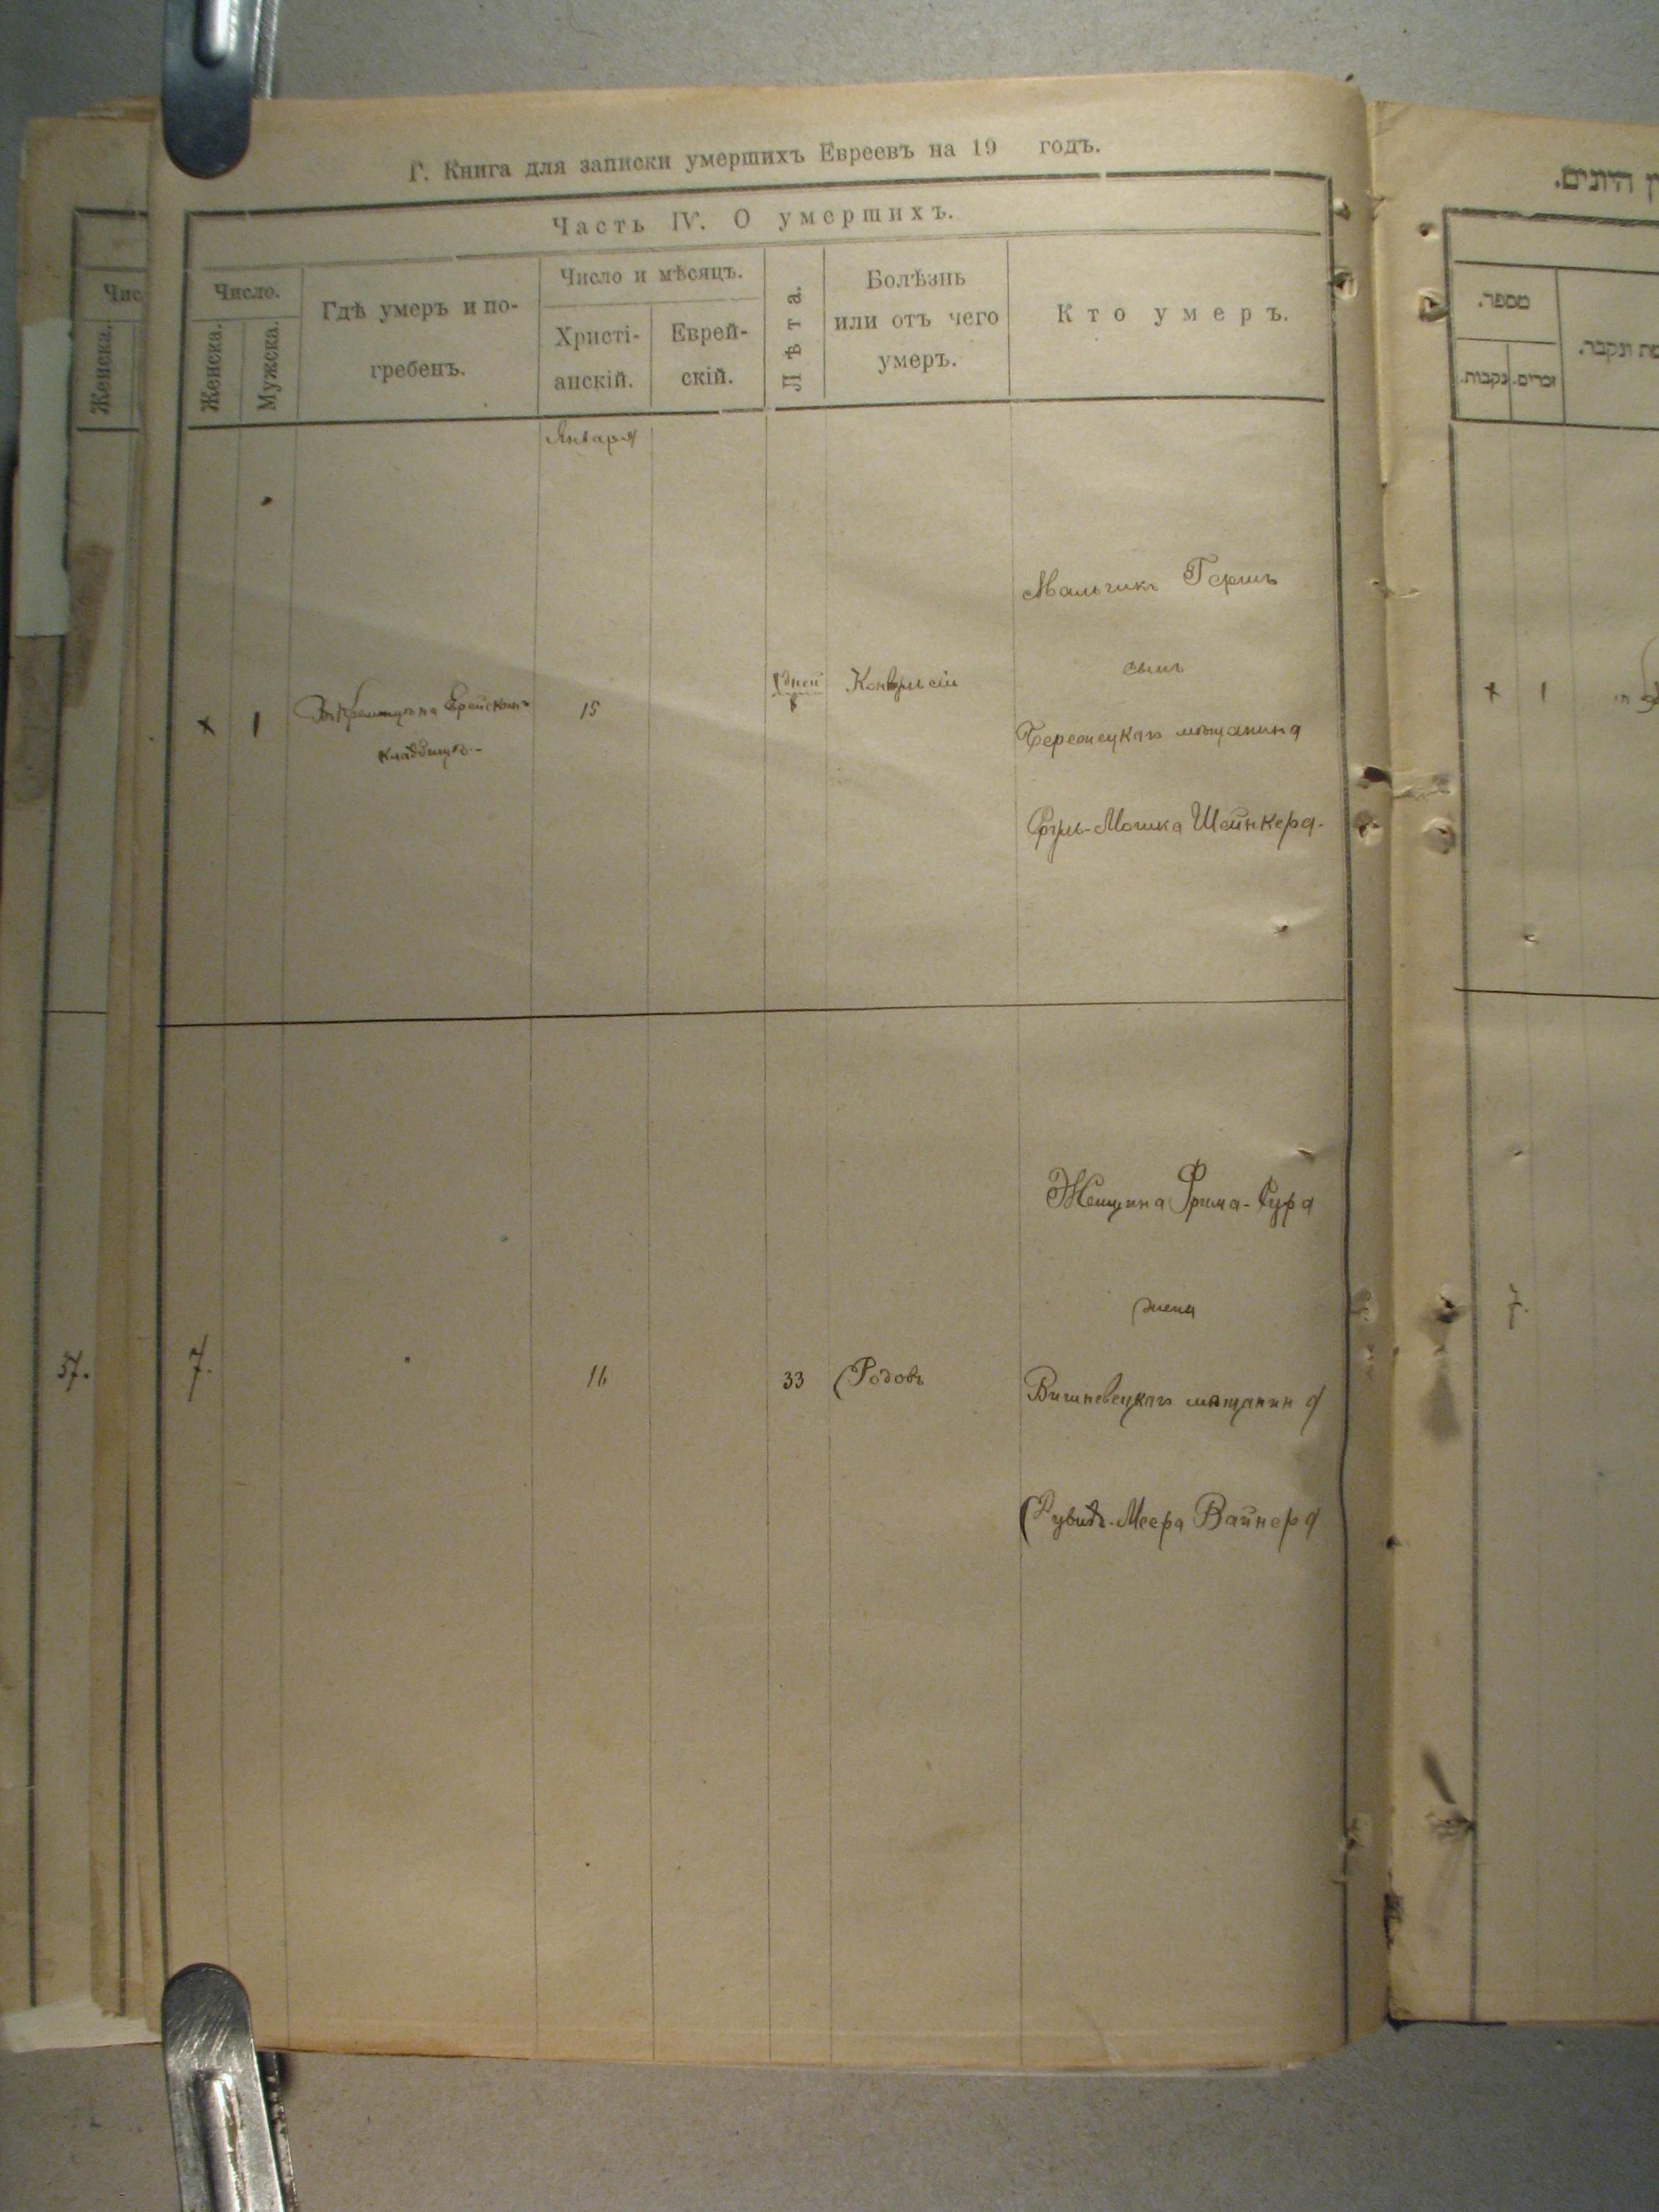 Г. Книга для записки умершихъ Евреевъ на 19 годъ.
Часть IV. О умершихъ.
Число.
Женска.
Мужска.
Гдѣ умеръ и по-
гребенъ.
Число и мѣсяцъ.
Христі-
анскій.
Еврей-
скій.
Лѣта.
Болѣзнь
или отъ чего
умеръ.
Кто умеръ.
Января
Мальчикъ Гершъ
сынъ
х 1
Еврейскомъ
кладбищѣ.-
15
8 дней
Конвульсіи
мѣщанина
Сруль-Мошка Шейнкера.
Женщина Фрима-Сура
жена
7.
16
33
Родовъ
Вишневецкаго мѣщанина
Меера Вайнера
Чис
Женска.
57.
מספר.
זכרים.
נקבות.
ונקבר.
х 1
7.